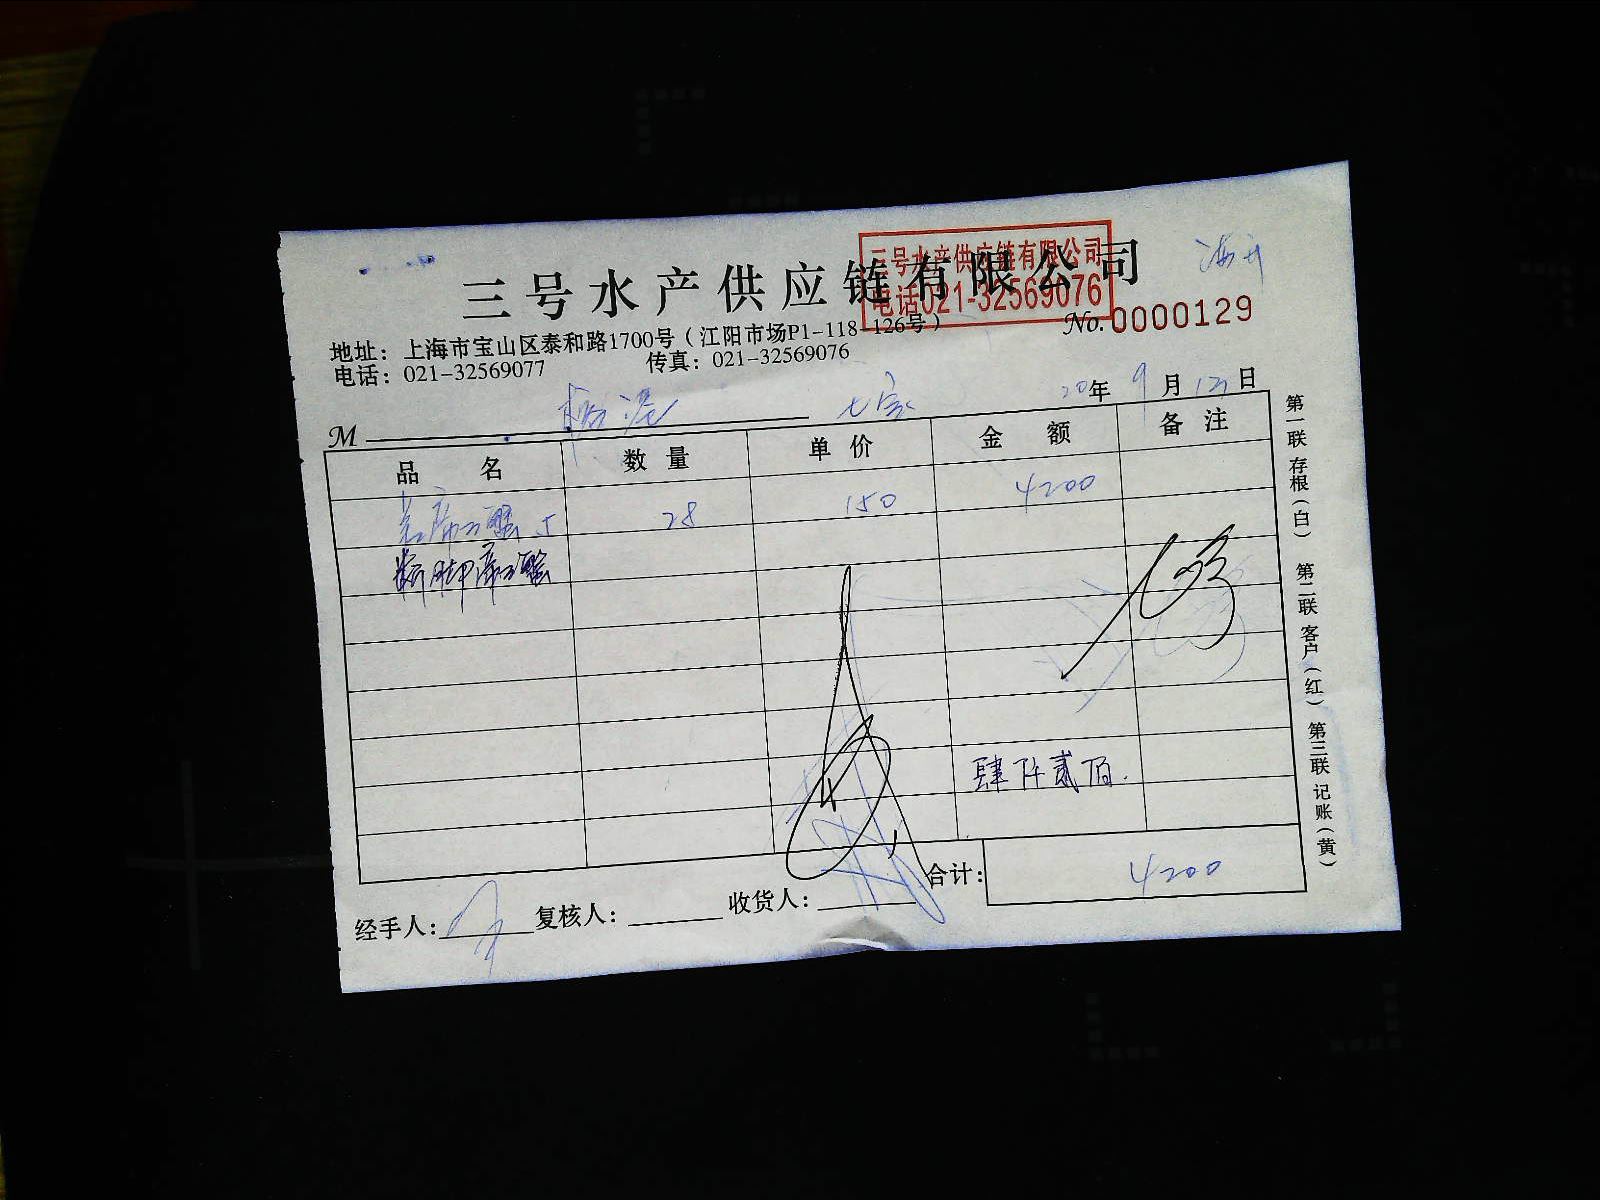 三号水产供应链有限公司
三号水产供应链有限公司
电话021-32569076
No.0000129
地址：上海市宝山区泰和路1700号（江阳市场P1-118-126号）
电话：021-32569077 传真：021-32569076
20年9月 日
M
品名 数量 单价 金额 备注
28 150 4200
断脚帝王蟹
肆仟贰佰.
合计： 4200
经手人： 复核人： 收货人：
第一联存根（白） 第二联客户（红） 第三联记账（黄）